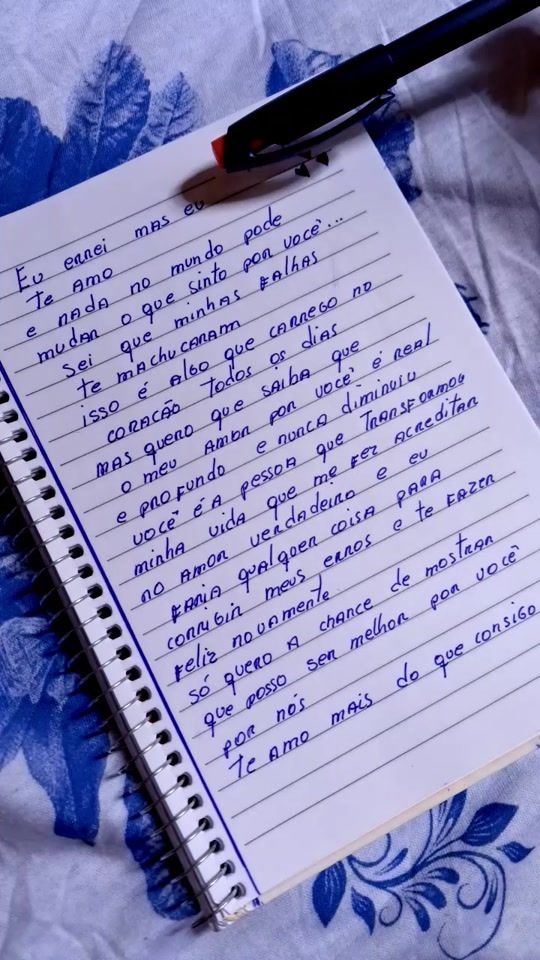 Eu errei mas eu
te amo
e nada no mundo pode
mudar o que sinto por você...
sei que minhas falhas
te machucaram
isso é algo que carrego no
coração todos os dias
mas quero que saiba que
o meu amor por você é real
e profundo e nunca diminuiu
você é a pessoa que transformou
minha vida que me fez acreditar
no amor verdadeiro e eu
faria qualquer coisa para
corrigir meus erros e te fazer
feliz novamente.
só quero a chance de mostrar
que posso ser melhor por você
por nós
te amo mais do que consigo